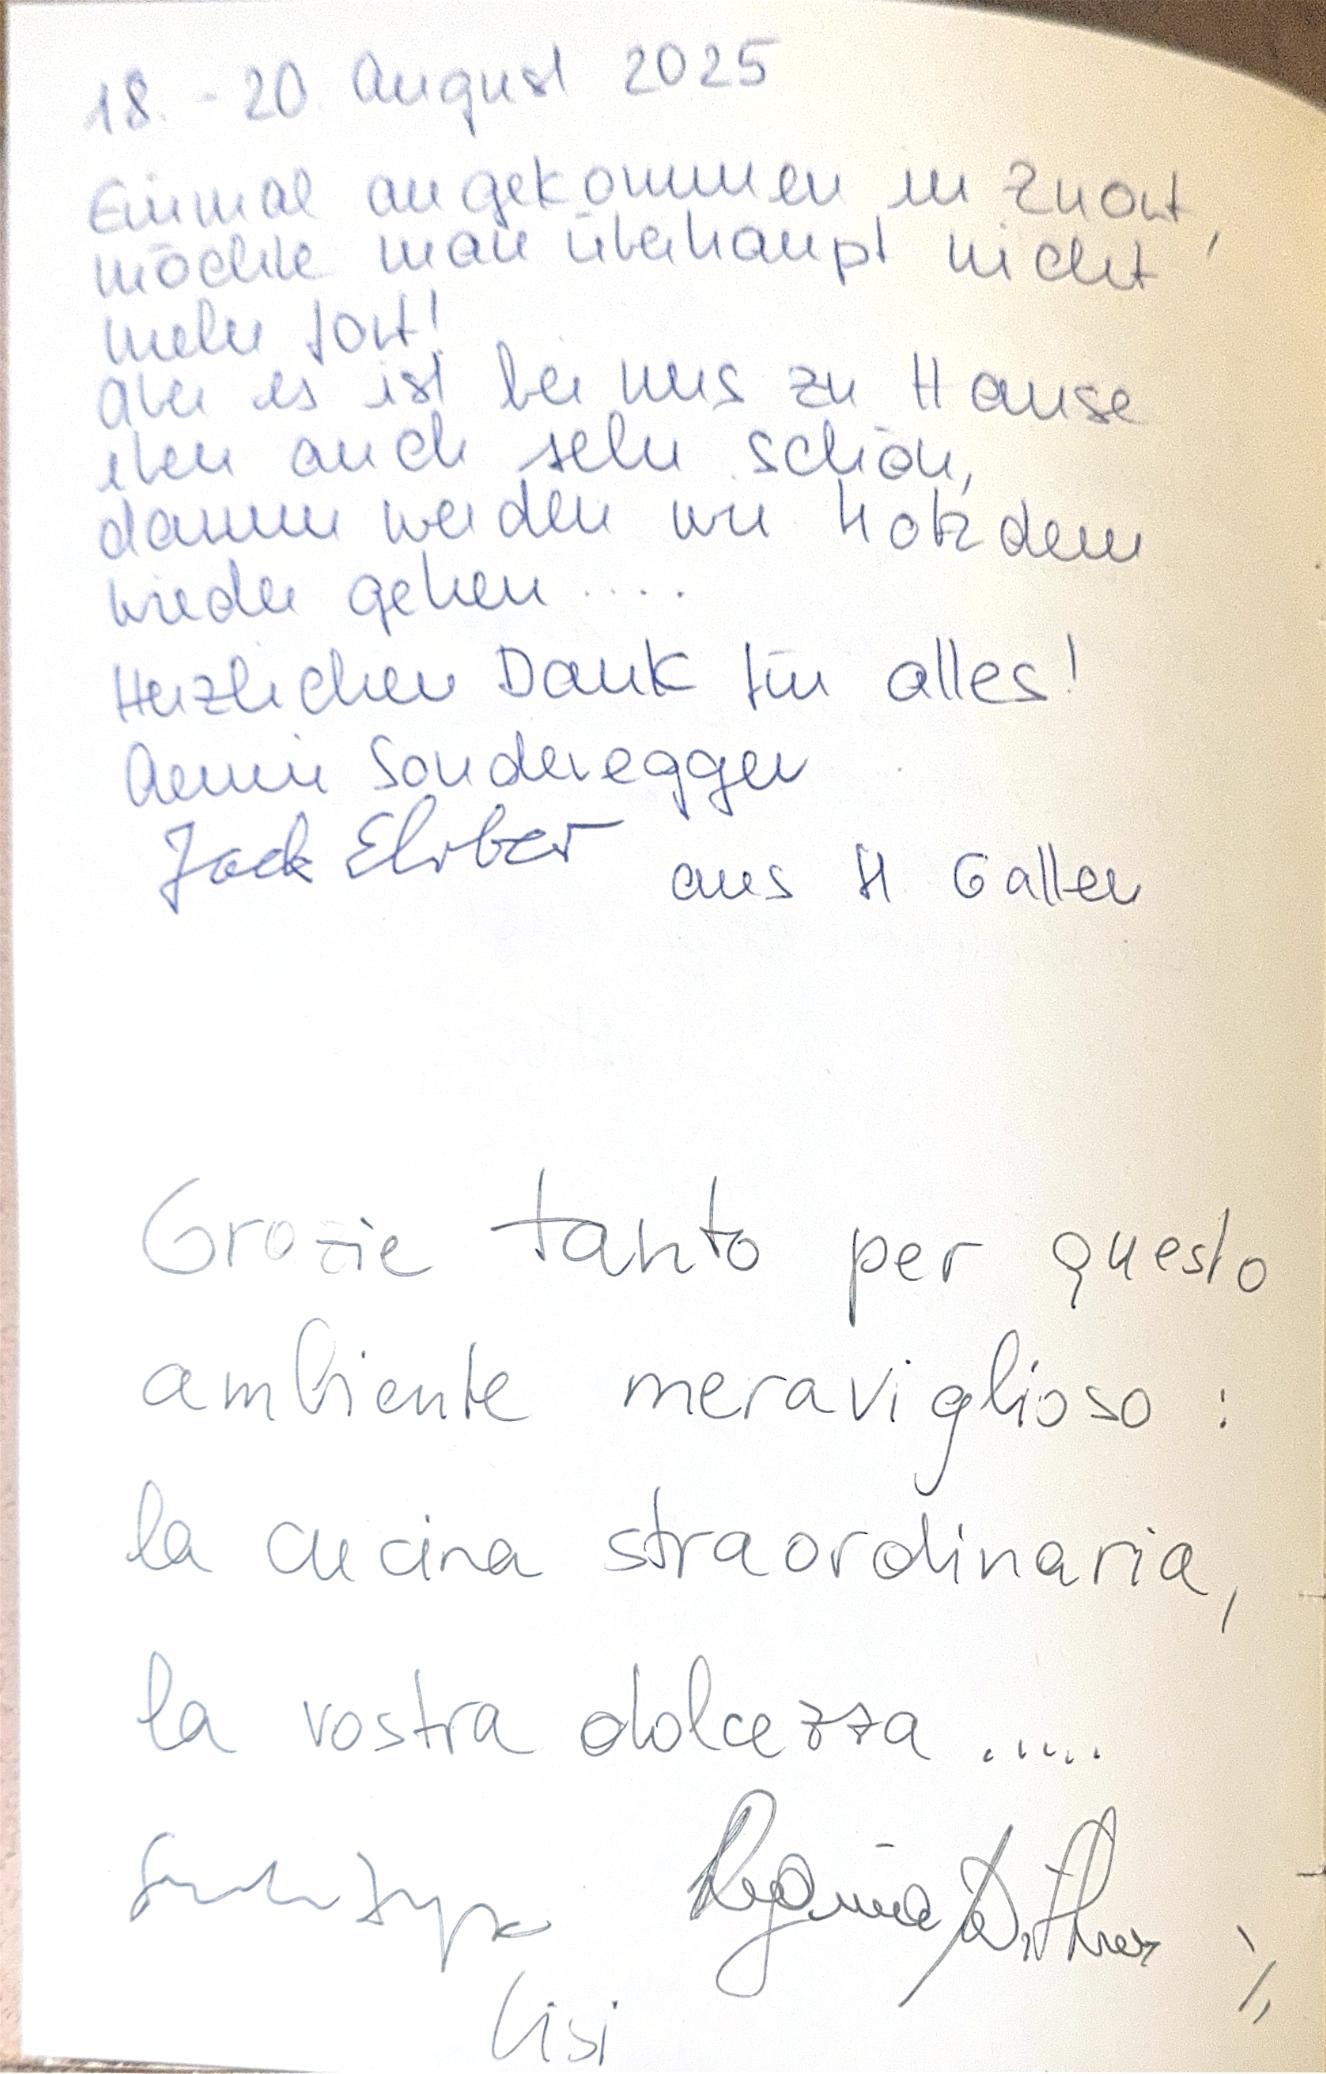 18. - 20. August 2025
Einmal angekommen in Zuort,
möchte man überhaupt nicht
mehr fort!
Aber es ist bei uns zu Hause
eben auch sehr schön,
darum werden wir trotzdem
wieder gehen ....
Herzlichen Dank für alles!
Sonderegger
Jack Ehrber
aus St Gallen
Grazie tanto per questo
ambiente meraviglioso :
la cucina straordinaria,
la vostra dolcezza .....
Regina
Lisi